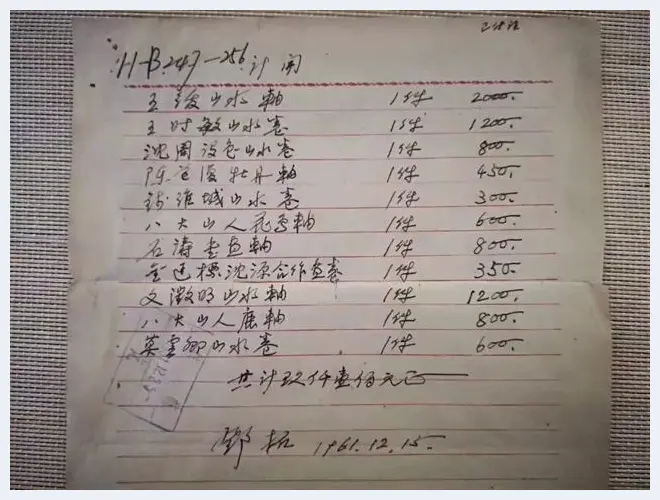 H-B.247-256 计開
王绂山水軸 1件 2000.
王时敏山水卷 1件 1200.
沈周设色山水卷 1件 800.
陈道復牡丹軸 1件 450.
钱维城山水卷 1件 300.
八大山人花鸟軸 1件 600.
石涛书画軸 1件 800.
金廷標沈源合作画卷 1件 350.
文徵明山水軸 1件 1200.
八大山人鹿軸 1件 800.
莫雲卿山水卷 1件 600.
共计玖仟壹佰元正
鄧拓 1961.12.15.